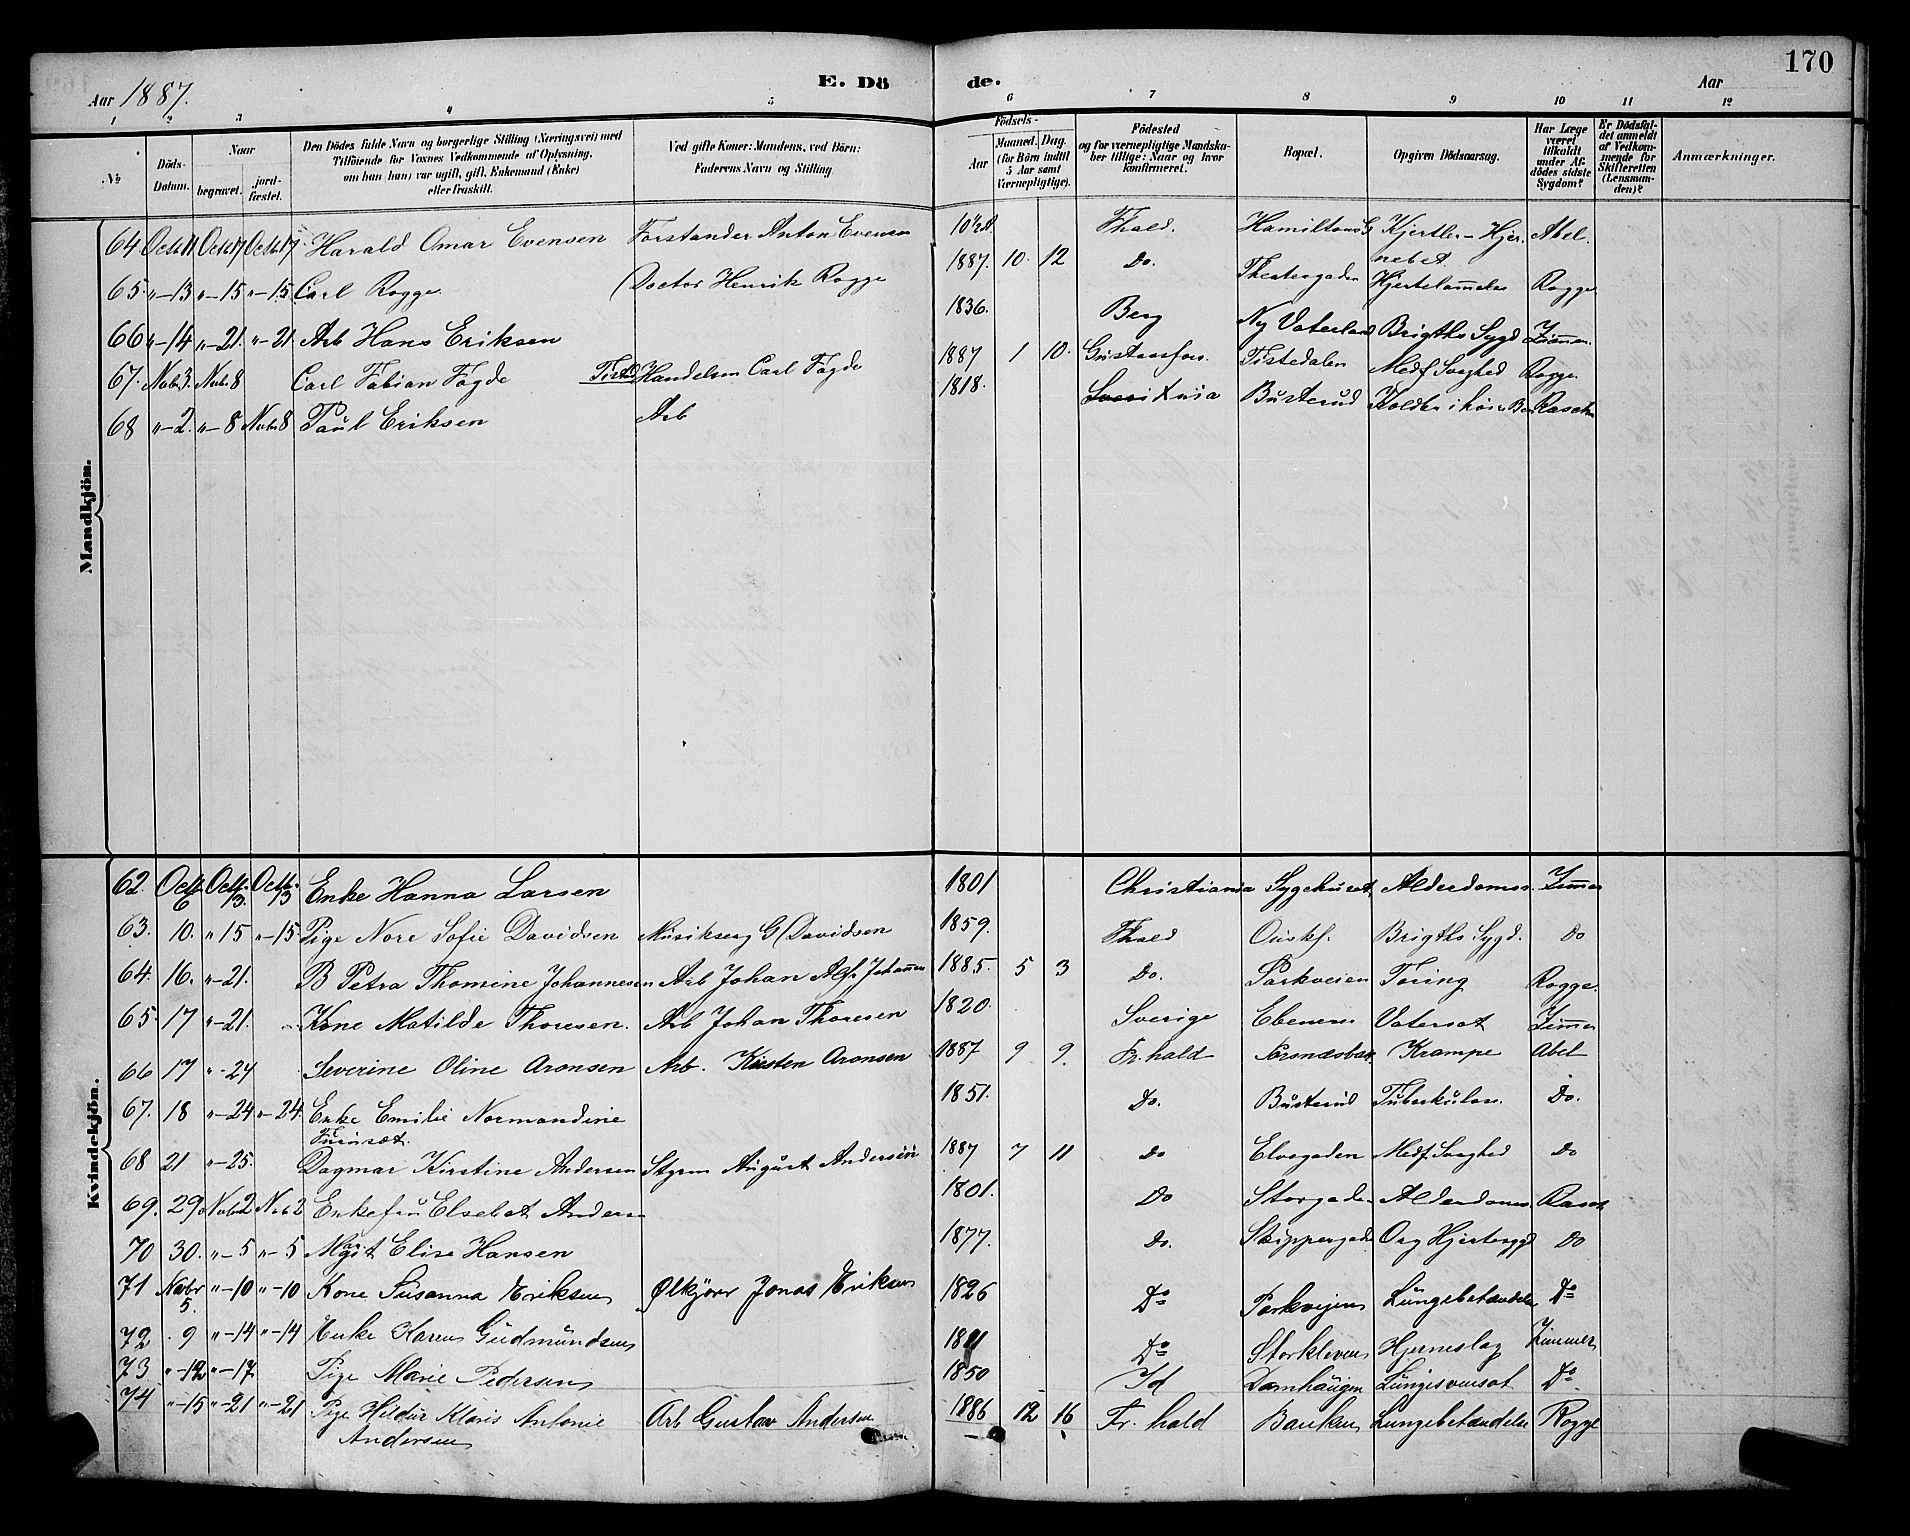 170
Aar 1887.
E. Dö de.
Aar
1 2 3 4 5 6 7 8 9 10 11 12
№
Döds-Datum.
Naar
begravet.
jord-fæstet.
Den Dödes fulde Navn og borgerlige Stilling (Næringsvei) med
Tilföiende for Voxnes Vedkommende af Oplysning,
om han (hun) var ugift, gift, Enkemand (Enke)
eller fraskilt.
Ved gifte Koner: Mandens, ved Börn:
Faderens Navn og Stilling.
Födsels-
Aar
Maaned. Dag.
(for Börn indtil
5 Aar samt
Værnepligtige).
Födested
og for værnepligtige Mandska-
ber tillige: Naar og hvor
konfirmeret.
Bopæl.
Opgiven Dödsaarsag.
Har Læge
været
tilkaldt
under Af-
dödes sidste
Sygdom?
Er Dödsfal-
det anmeldt
af Vedkom-
mende for
Skifteretten
(Lensman-
den)?
Anmærkninger.
Mandkjön.
64 Octb 11 Octb 17 Octb 17 Harald Omar Evensen Forstander Anton Evensen 10½ A Fhald. Hamiltons G Kjertler-Hjer- Abel
nebet
65. "-13 "-15 "-15 Carl Rogge. Doctor Henrik Rogge 1887. 10. 12 Do. Theatergaden Hjertelammelse Rogge
66 "-14 "-21. "-21. Arb Hans Eriksen 1836. Berg Ny Vaterland Brigths Sygd Zimmer
67. Nvbr 3. Nvbr 8 Carl Fabian Fagde Tisted Handelsm Carl Fagde 1887 1 10. Gustavsfors. Tistedalen Medf Svaghed Rogge
68 "-2. "-8 Nvbr 8 Paul Eriksen Arb 1818. Busterud Koldbr i
Kvindekjön.
62. Octb 6 Octb. 13. Octb. 13 Enke Hanna Larsen 1801 Christiania Sygehuset Alderdomss. Zimmer
63. 10. "15 "-15. Pige Nore Sofie Davidsen G Davidsen 1859. Fhald Brigths Sygd. Do
64. 16. "-21. B Petra Thomine Johannesen Arb Johan Alf. Johannesen 1885. 5 3 Do. Parkveien Tæring Rogge.
65. 17 "-21. Kone Matilde Thoresen. Arb Johan Thoresen 1820. Sverige Ebeneser Vatersot Zimmer
66 17 "-24 Severine Oline Aronsen Arb. Kirsten Aronsen 1887 9 9. Fr. hald Krampe Abel
67. 18 "-24 "-24. Enke Emilie Normandine 1851. Do. Busterud Tuberkulose Do.
Furuset.
68 21 "-25. Dagmar Kirstine Andersen Styrm August Andersen 1887 7 11 Do Elvegaden Medf. Svaghed Do
69. 29 Nvbr 2 Nvbr 2 Enkefru Elsebet Anders 1801. Do Storgaden Alderdoms Rasch
70 30. "-5 "-5 Margit Elise Hansen 1877. Do. Skippergade Org Hjertesygd Do
71 Novbr 5. "-10 "-10 Kone Susanna Eriksen Ølkjörer Jonas Eriksen 1826 Do Parkvejen Lungebetændelse Do
72 9 "-14 "-14 Enke Karen Gudmundsen Do Storkleven Hjerneslag Zimmer
73 "-12 "-17 Pige Marie Pedersen 1850 Id Damhaugen Do
74 "-15 "-21 "-21 Pige Hildur Klaris Antonie Arb Gustav Andersen 1886 12 16 Fr. hald Banken Lungebetændelse Rogge
Andersen